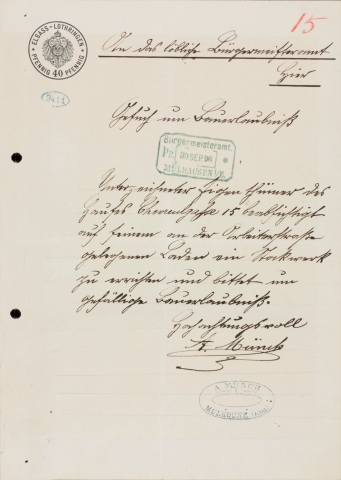 15
ELSASS-LOTHRINGEN
PFENNIG 40 PFENNIG
An das löbliche Bürgermeisteramt
Hier
Gesuch um Bauerlaubniß
Bürgermeisteramt
Pr. 30 SEP. 96
MÜLHAUSEN I/E.
Unterzeichneter Eigenthümer des
Hauses 15 beabsichtigt
auf seinem an der Arbeiterstraße
gelegenen Laden ein Stockwerk
zu errichten und bittet um
gefällige Bauerlaubniß.
Hochachtungsvoll
A. Münch
A. MÜNCH